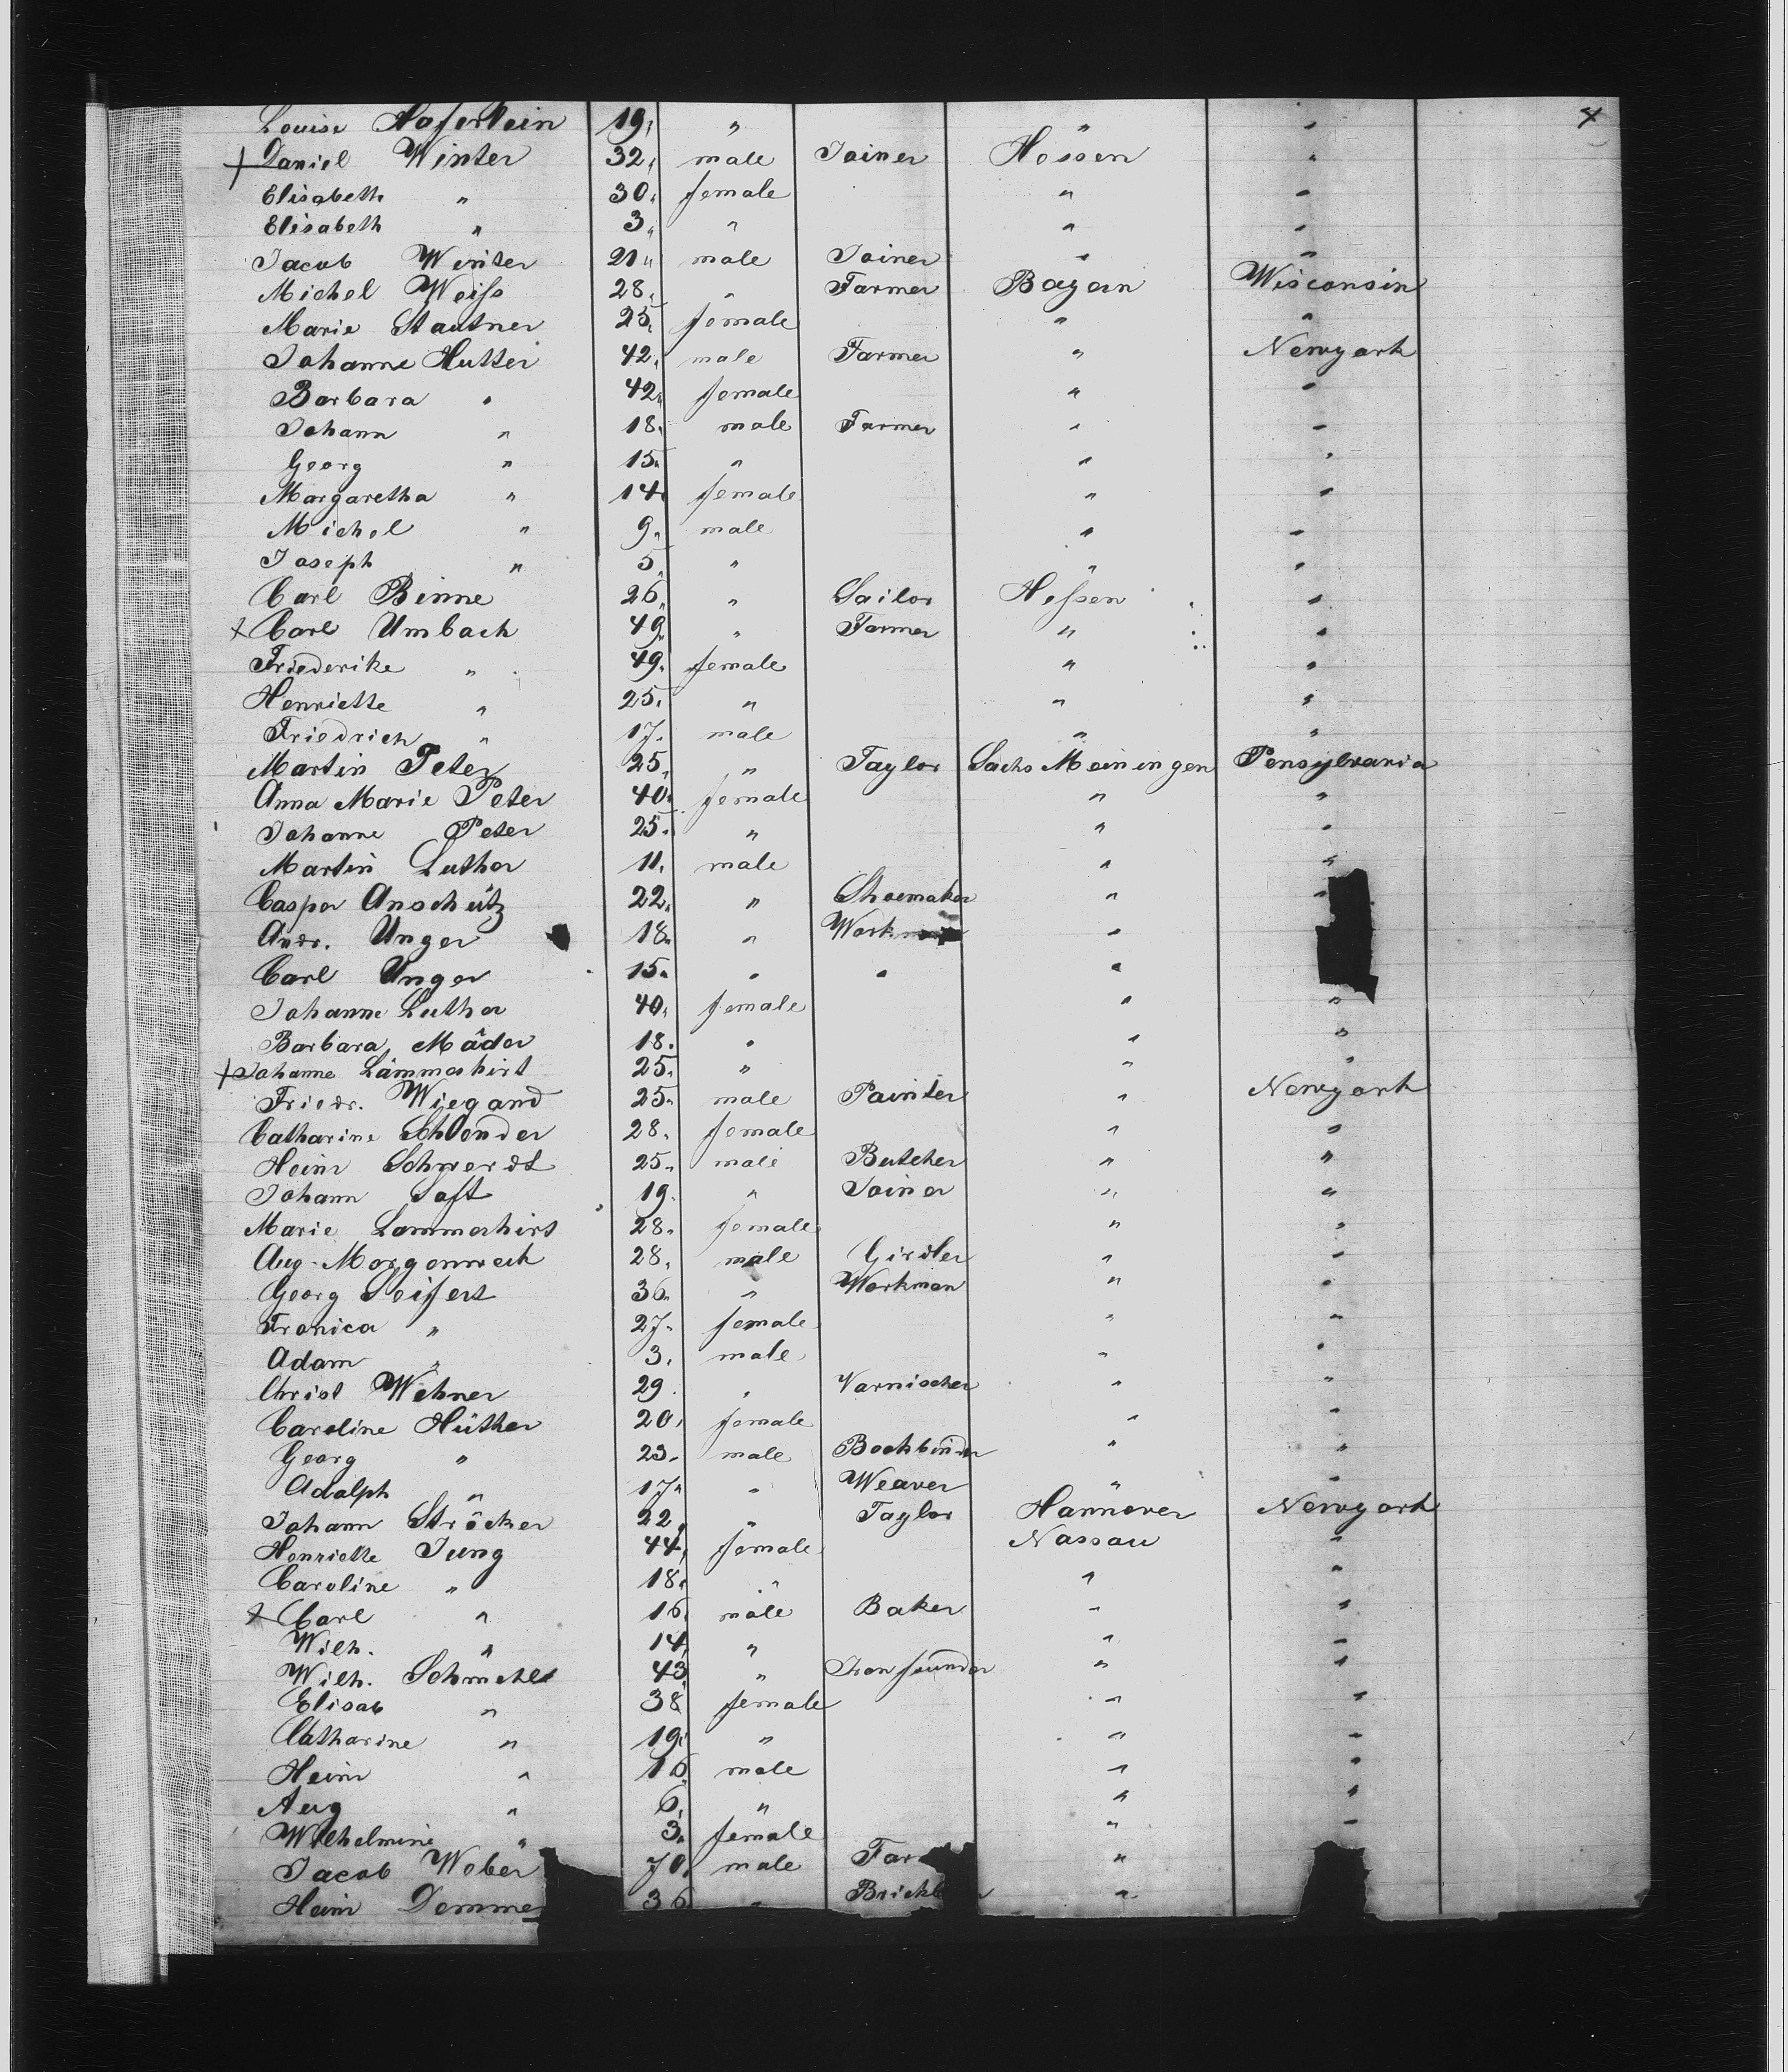 4
Louise Haferlein 19 " " "
+ Daniel Winter 32 " male Joiner Hessen "
Elisabeth " 30 " female " "
Elisabeth " 3 " " " "
Jacob Winter 21 " male Joiner " "
Michel Weiss 28 " " Farmer Bayern Wisconsin
Marie Stautner 25 " female " "
Johanne Hutter 42 " male Farmer " Newyork
Barbara " 42 " female " "
Johann " 18 " male Farmer " "
Georg " 15 " " " "
Margaretha " 14 " female " "
Michel " 9 " male " "
Joseph " 5 " " " "
Carl Binne 26 " " Sailor Hessen "
+ Carl Umbach 49 " " Farmer " "
Friederike " 49 " female " "
Henriette " 25 " " " "
Friedrich " 17 " male " "
Martin Peter 25 " " Taylor Sachs Meiningen Pensylvania
Anna Marie Peter 40 " female " "
Johanne Peter 25 " " " "
Martin Luther 11 " male " "
Caspar Anschütz 22 " " Shoemaker " "
Andr. Unger 18 " " "
Carl Unger 15 " " " "
Johanne Luther 40 " female " "
Barbara Mäder 18 " " " "
+ Johanne Lämmerhirt 25 " " " "
Friedr. Wiegand 25 " male Painter " Newyork
Catharine Schlender 28 " female " "
Heinr Schwerdt 25 " male Butcher " "
Johann Saft 19 " " Joiner " "
Marie Lammerhirt 28 " female " "
Aug. Morgenweck 28 " male Girdler " "
Georg Seifert 36 " " Workman " "
Fronica " 27 " female " "
Adam " 3 " male " "
Christ Wehner 29 " " Varnischer " "
Caroline Hüther 20 " female " "
Georg " 23 " male Bookbinder " "
Adolph " 17 " " Weaver " "
Johann Ströcker 22 " " Taylor Hannover Newyork
Henriette Jung 44 " female Nassau "
Caroline " 18 " " " "
+ Carl " 16 " male Baker " "
Wilh. " 14 " " " "
Wilh. Schmehl 43 " " Iron founder " "
Elisab " 38 " female " "
Catharine " 19 " " " "
Heinr " 16 " male " "
Aug " 6 " " " "
Wilhelmine " 3 " female " "
Jacob Weber 70 " male Far "
Heinr Demme 36 " Brickl "